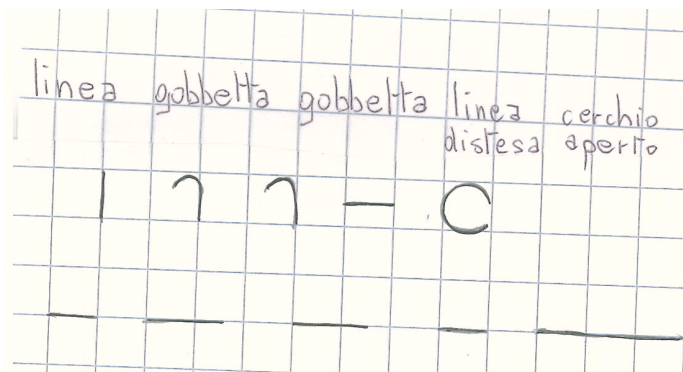 linea gobbetta gobbetta linea distesa cerchio aperto